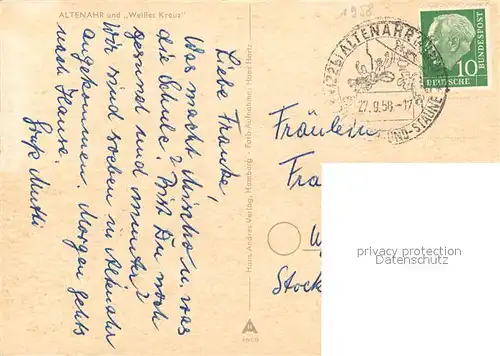 ALTENAHR und „Weißes Kreuz"
Liebe Frauke,
Was macht Mischa u. was
die Schule? Bist Du noch
gesund und munter?
Wir sind soeben in Altenahr
angekommen. Morgen gehts
nach Hause.
Gruß Mutti
Hans Andres Verlag, Hamburg - Farb-Aufnahme: Hans Hartz
A
1958
(22c) ALTENAHR
27.9.58-17
UND STAUNE
DEUTSCHE
BUNDESPOST
10
Fräulein
Fra
W
Stock
privacy protection
veikkos.com